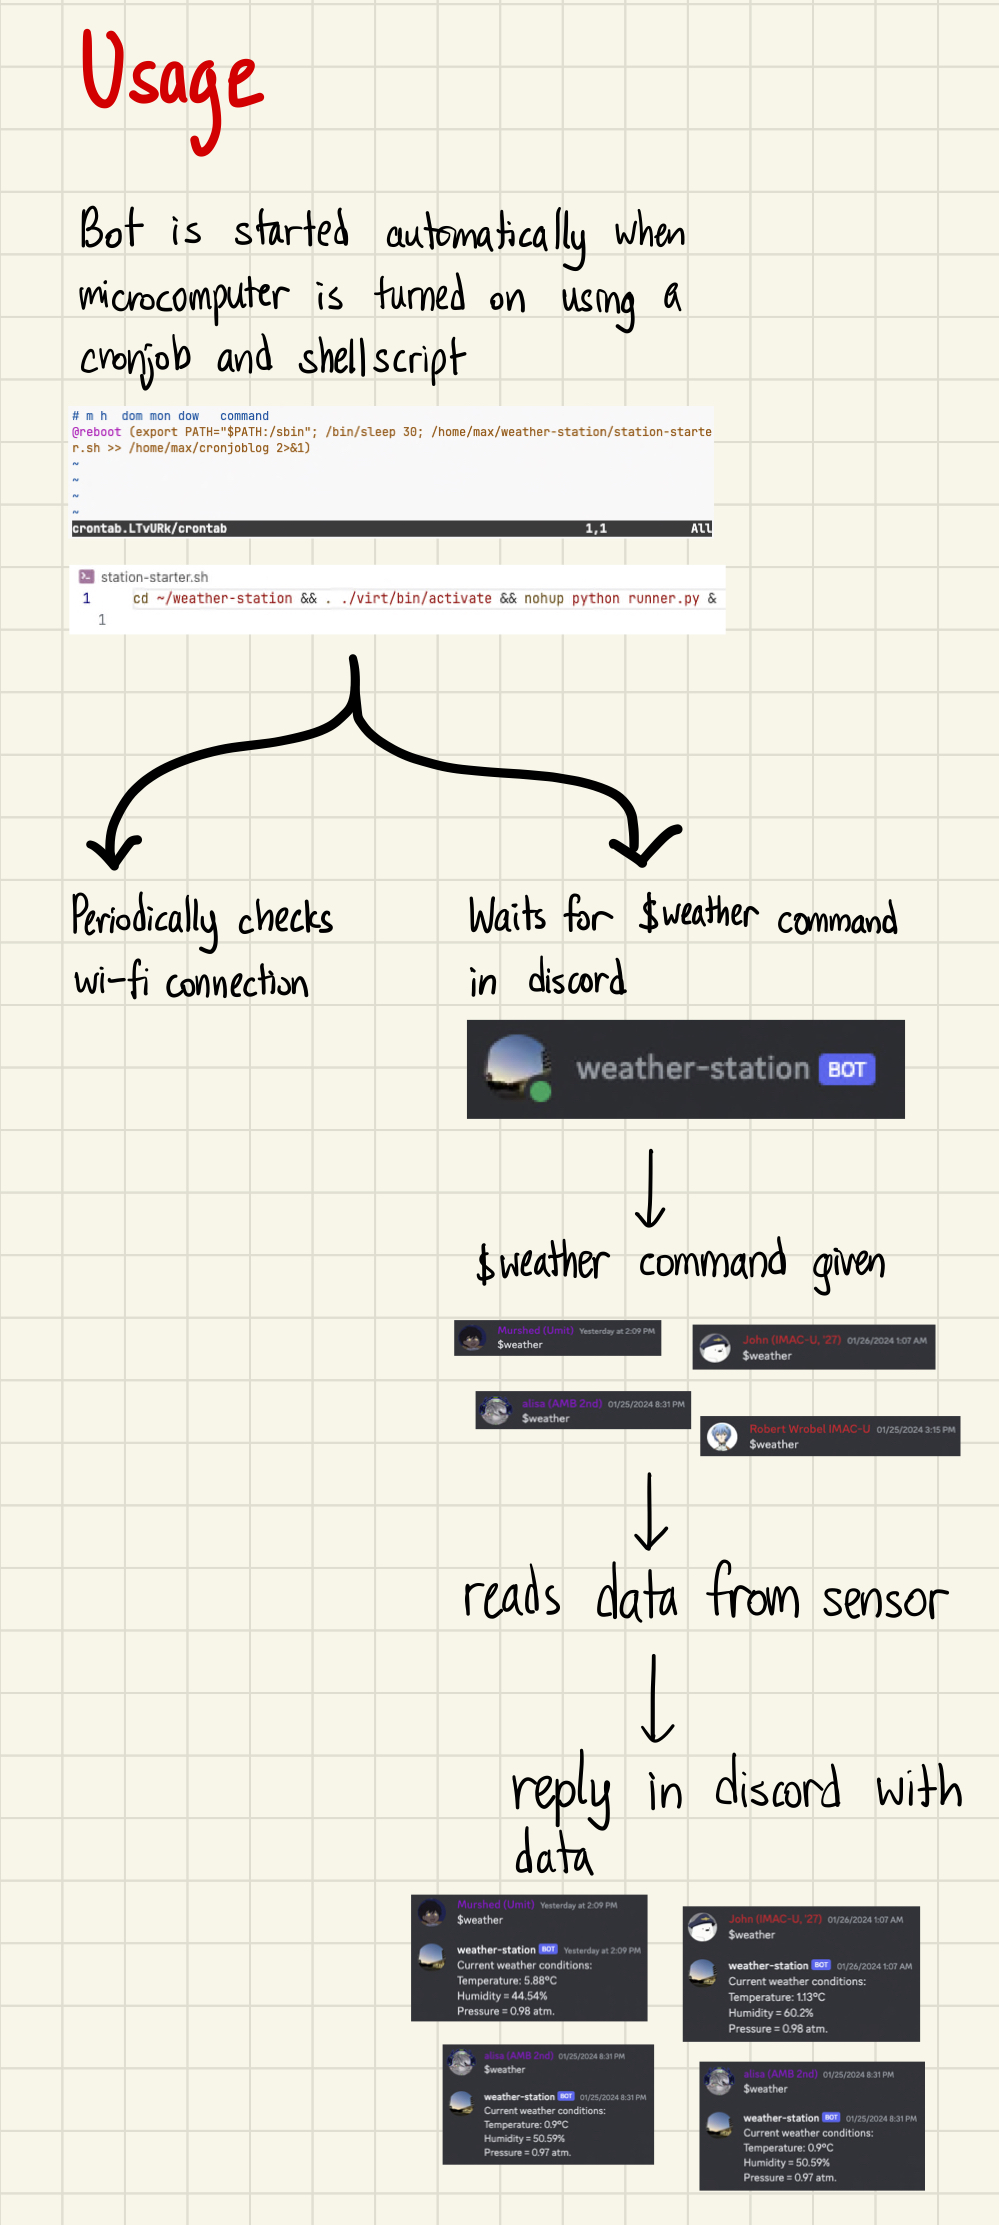 Usage
Bot is started automatically when
microcomputer is turned on using a
cronjob and shellscript
# m h  dom mon dow   command
@reboot (export PATH="$PATH:/sbin"; /bin/sleep 30; /home/max/weather-station/station-starte
r.sh >> /home/max/cronjoblog 2>&1)
~
~
~
~
crontab.LTvURk/crontab 1,1 All
station-starter.sh
1 cd ~/weather-station && . ./virt/bin/activate && nohup python runner.py &
1
Periodically checks
wi-fi connection
Waits for $weather command
in discord
weather-station BOT
$weather command given
Murshed (Umit) Yesterday at 2:09 PM
$weather
John (IMAC-U, '27) 01/26/2024 1:07 AM
$weather
alisa (AMB 2nd) 01/25/2024 8:31 PM
$weather
Robert Wrobel IMAC-U 01/25/2024 3:15 PM
$weather
reads data from sensor
reply in discord with
data
Murshed (Umit) Yesterday at 2:09 PM
$weather
weather-station BOT Yesterday at 2:09 PM
Current weather conditions:
Temperature: 5.88°C
Humidity = 44.54%
Pressure = 0.98 atm.
John (IMAC-U, '27) 01/26/2024 1:07 AM
$weather
weather-station BOT 01/26/2024 1:07 AM
Current weather conditions:
Temperature: 1.13°C
Humidity = 60.2%
Pressure = 0.98 atm.
alisa (AMB 2nd) 01/25/2024 8:31 PM
$weather
weather-station BOT 01/25/2024 8:31 PM
Current weather conditions:
Temperature: 0.9°C
Humidity = 50.59%
Pressure = 0.97 atm.
alisa (AMB 2nd) 01/25/2024 8:31 PM
$weather
weather-station BOT 01/25/2024 8:31 PM
Current weather conditions:
Temperature: 0.9°C
Humidity = 50.59%
Pressure = 0.97 atm.